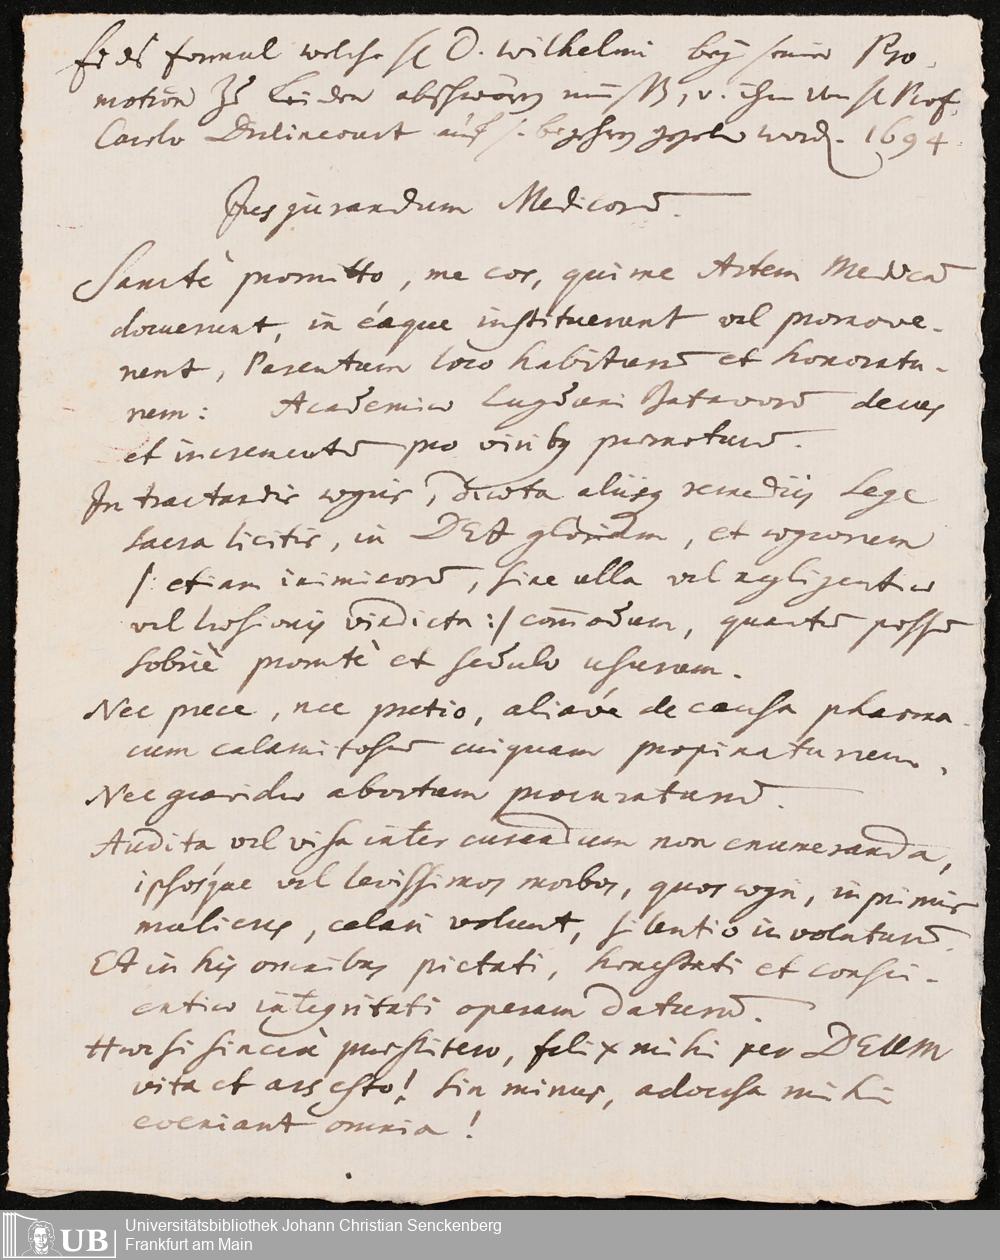 formul welche H D. Wilhelmi bey seiner Pro-
motion zu Leiden abschwören müssen, v. ihm von H Prof.
Carolo Drelincourt auf s. begehren gegeben word. 1694.
Jusjurandum Medicorū.
Sanctè promitto, me eos, qui me Artem Medicā
docuerunt, in eáque instituerunt vel promove-
runt, Parentum loco habiturū et honoratu-
rum: Academiæ Lugduni Batavorū decus
et incrementū pro viribꝫ promoturū.
In tractandis ægris, diæta aliisqꝫ remediis Lege
sacra licitis, in DEI gloriam, et ægrorum
/: etiam inimicorū, sine ulla vel negligentiæ
vel læsionis vindicta :/ com̄odum, quantū possū
sobriè promtè et sedulo usurum.
Nec prece, nec pretio, aliave de causa pharma-
cum calamitosū cuiquam propinaturum.
Nec gravidæ abortum procuraturū.
Audita vel visa inter curandum non enumeranda,
ipsosque vel levissimos morbos, quos ægri, inprimis
mulieres, celari volunt, silentio involuturū.
Et in his omnibus pietati, honestati et consci-
entiæ integritati operam daturū.
Hæc si sincerè præstitero, felix mihi per DEUM
vita et ars esto! sin minus, adversa mihi
eveniant omnia!
Universitätsbibliothek Johann Christian Senckenberg
Frankfurt am Main
UB